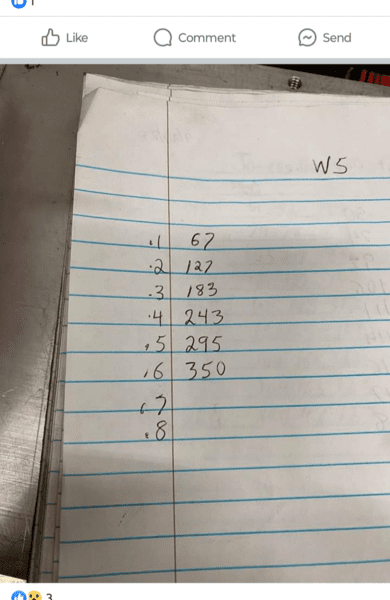 1
Like Comment Send
W5
.1 67
.2 127
.3 183
.4 243
.5 295
.6 350
.7
.8
3